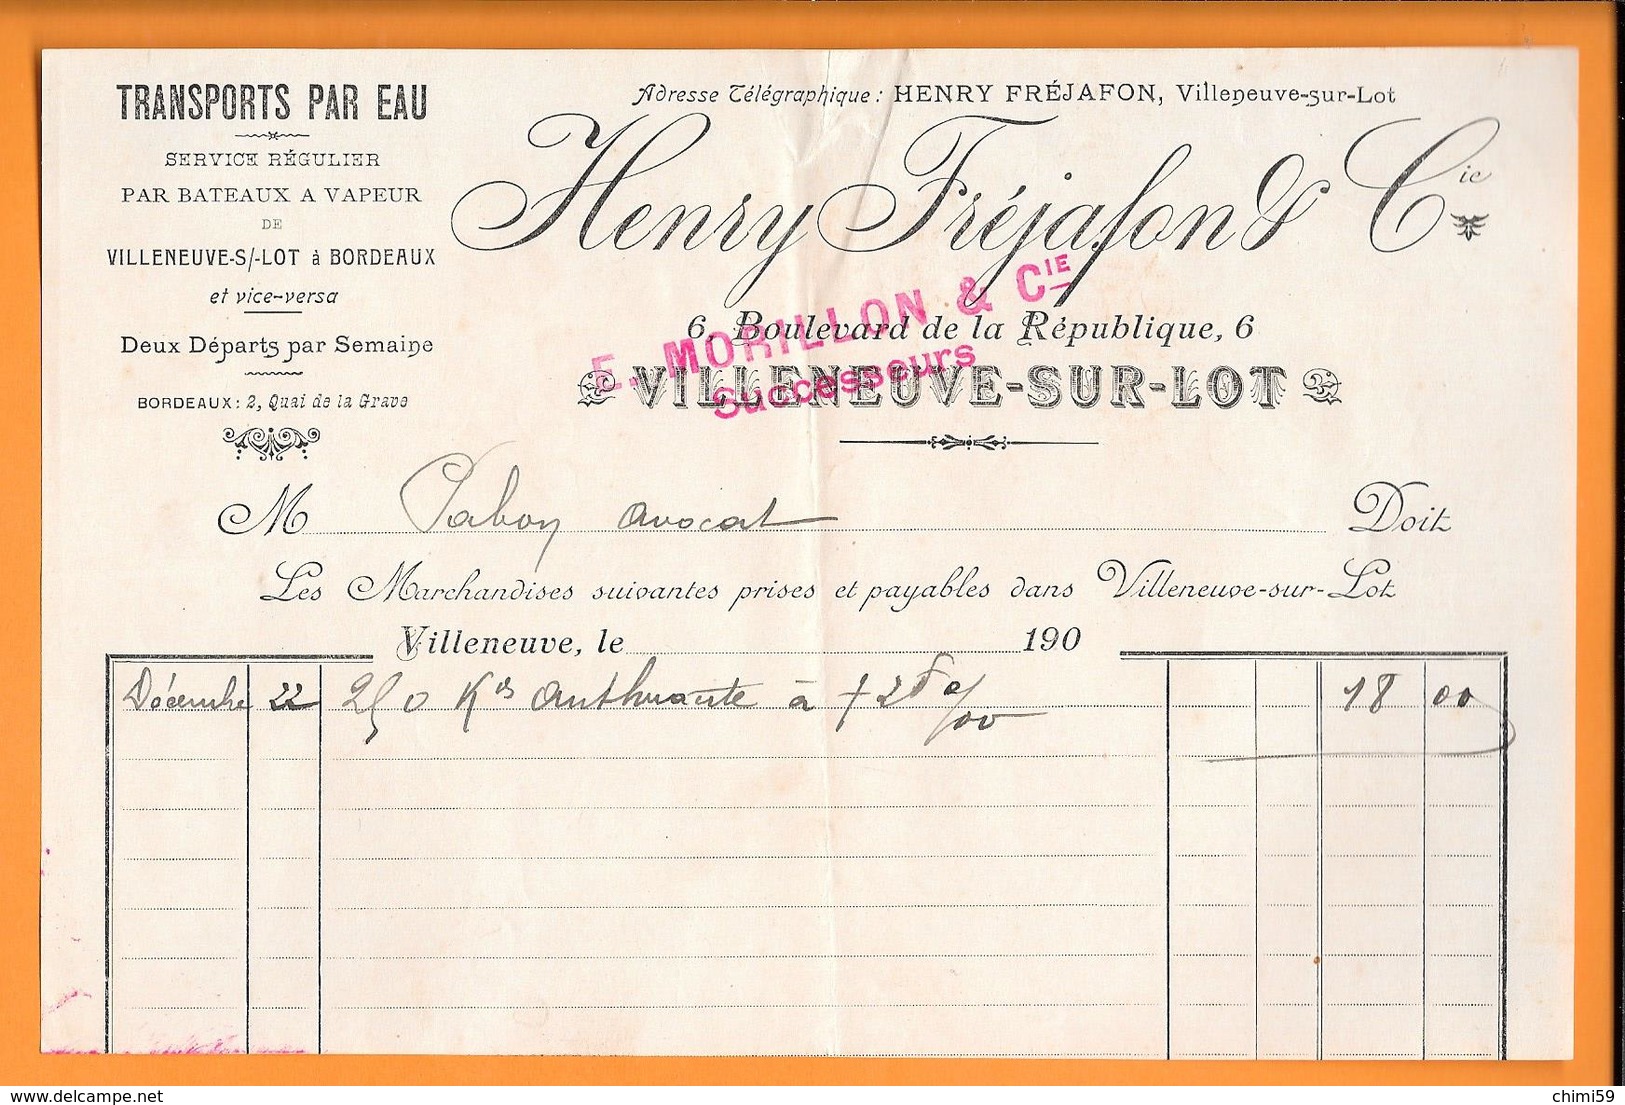 TRANSPORTS PAR EAU
SERVICE RÉGULIER
PAR BATEAUX A VAPEUR
DE
VILLENEUVE-S/-LOT à BORDEAUX
et vice-versa
Deux Départs par Semaine
BORDEAUX: 2, Quai de la Grave
Adresse Télégraphique: HENRY FRÉJAFON, Villeneuve-sur-Lot
Henry Fréjafon & Cie
E. MORILLON & CIE
Successeurs
6, Boulevard de la République, 6
VILLENEUVE-SUR-LOT
M avocat Doit
Les Marchandises suivantes prises et payables dans Villeneuve-sur-Lot
Villeneuve, le 190
Décembre 22 250 Kos à 18 00
chimi59